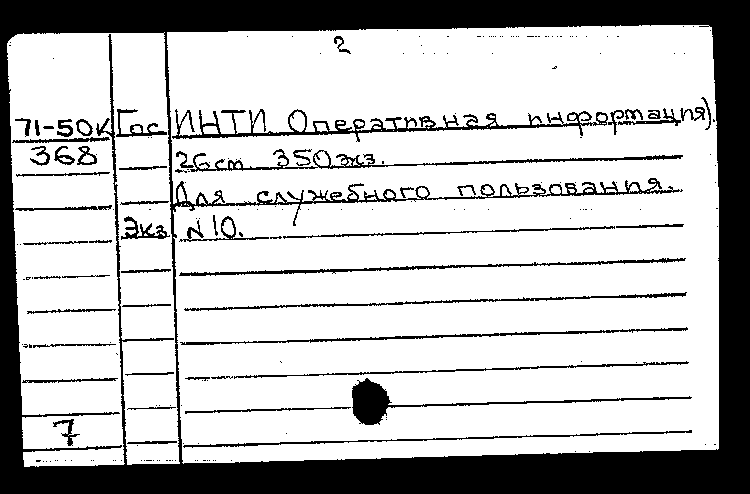 2
71-50к Гос ИНТИ. Оперативная информация).
368 26 ст. 350 экз.
Для служебного пользования.
Экз. № 10.
7